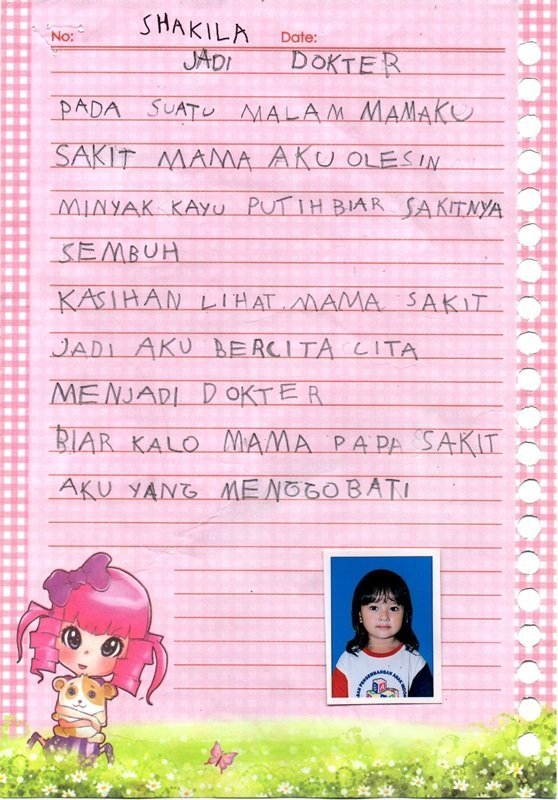 No: SHAKILA Date:
JADI DOKTER
PADA SUATU MALAM MAMAKU
SAKIT MAMA AKU OLESIN
MINYAK KAYU PUTIH BIAR SAKITNYA
SEMBUH
KASIHAN LIHAT. MAMA SAKIT
JADI AKU BERCITA CITA
MENJADI DOKTER
BIAR KALO MAMA PAPA SAKIT
AKU YANG MENGGOBATI